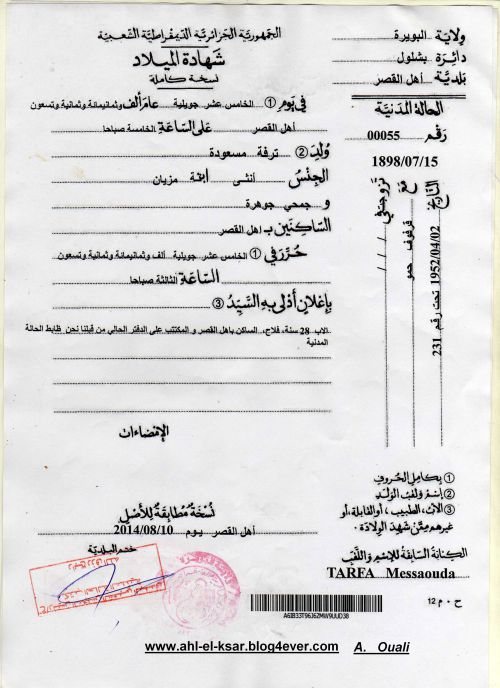 الجمهورية الجزائرية الديمقراطية الشعبية
شهادة الميلاد
نسخة كاملة
ولاية البويرة
دائرة بشلول
بلدية أهل القصر
الحالة المدنية
رقم 00055
1898/07/15
في يوم ① الخامس عشر جويلية عام ألف وثمانيمائة وثمانية وتسعون
أهل القصر على الساعة الخامسة صباحا
ولد ② ترفة مسعودة
الجنس أنثى ابنة مزيان
و جمحي جوهرة
الساكنين ب اهل القصر
حرر في ① الخامس عشر جويلية ألف وثمانيمائة وثمانية وتسعون
الساعة الثالثة صباحا
بإعلان أدلى به السيد ③
الاب 28 سنة، فلاح، الساكن باهل القصر و المكتتب على الدفتر الحالي من قبلنا نحن ظابط الحالة
المدنية
الإمضاءات
تزوجت في
مع قرفوف حمو
التاريخ 1952/04/02 تحت رقم 231
① بكامل الحروف
② إسم ولقب الولد
③ الأب، الطبيب، أو القابلة، أو
غيرهم ممن شهد الولادة.
نسخة مطابقة للأصل
أهل القصر يوم 2014/08/10
ختم البلدية
الكتابة السابقة للإسم واللقب
TARFA Messaouda
ح . م 12
A6IB33T96J6ZMW9UUD38
www.ahl-el-ksar.blog4ever.com A. Ouali